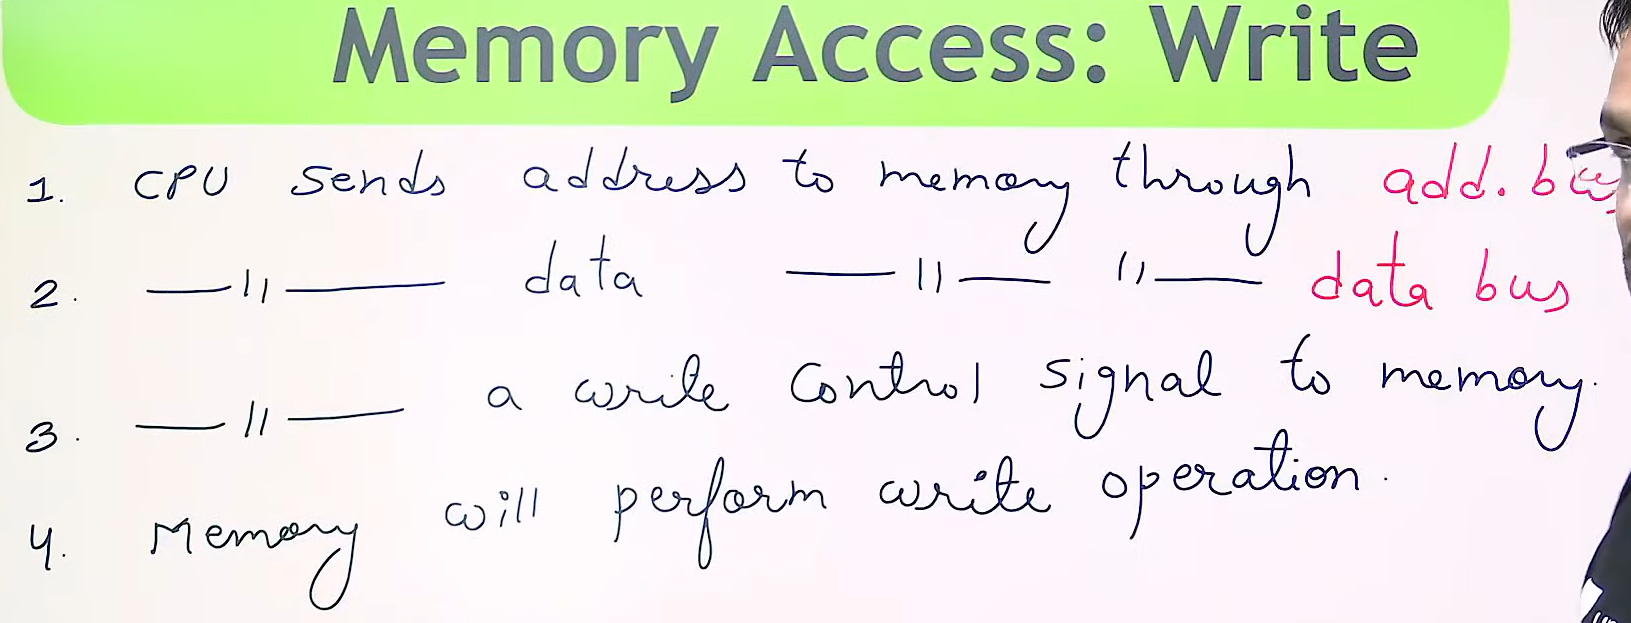 Memory Access: Write
1. CPU sends address to memory through add. bus
2. —〃— data —〃— 〃— data bus
3. —〃— a write control signal to memory.
4. Memory will perform write operation.